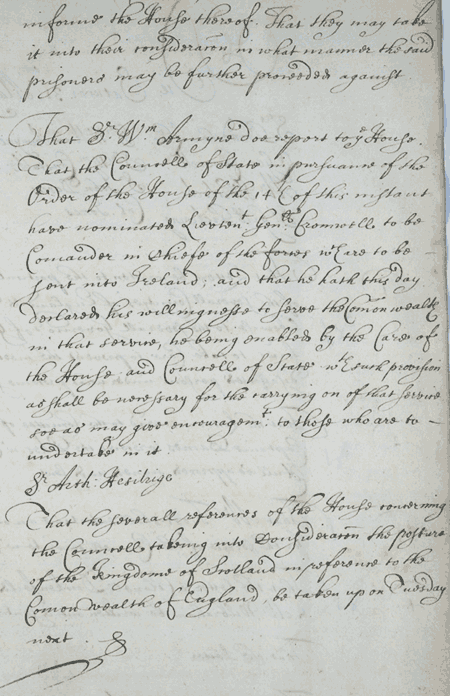 informe the House thereof. That they may take
it into their consideracon in what manner the said
prisoners may be further proceeded against
That Sr. Wm Armyne doe report to ye House.
That the Councell of State in pursuance of the
Order of the House of the 14th of this instant
have nominated Lieutent. Genll Cromwell to be
Comander in Chiefe of the forces wch are to be
sent into Ireland; and that he hath this day
declared his willingnesse to serve the Comonwealth
in that service, he being enabled by the Care of
the House and Councell of State wth such provision
as shall be necessary for the carrying on of that service
soe as may give encouragemt. to those who are to
undertake in it.
Sr Arth: Hesilrige
That the severall references of the House concerning
the Councells takeing into Consideracon the posture
of the Kingdome of Scotland in reference to the
Comonwealth of England, be taken up on Tuesday
next.